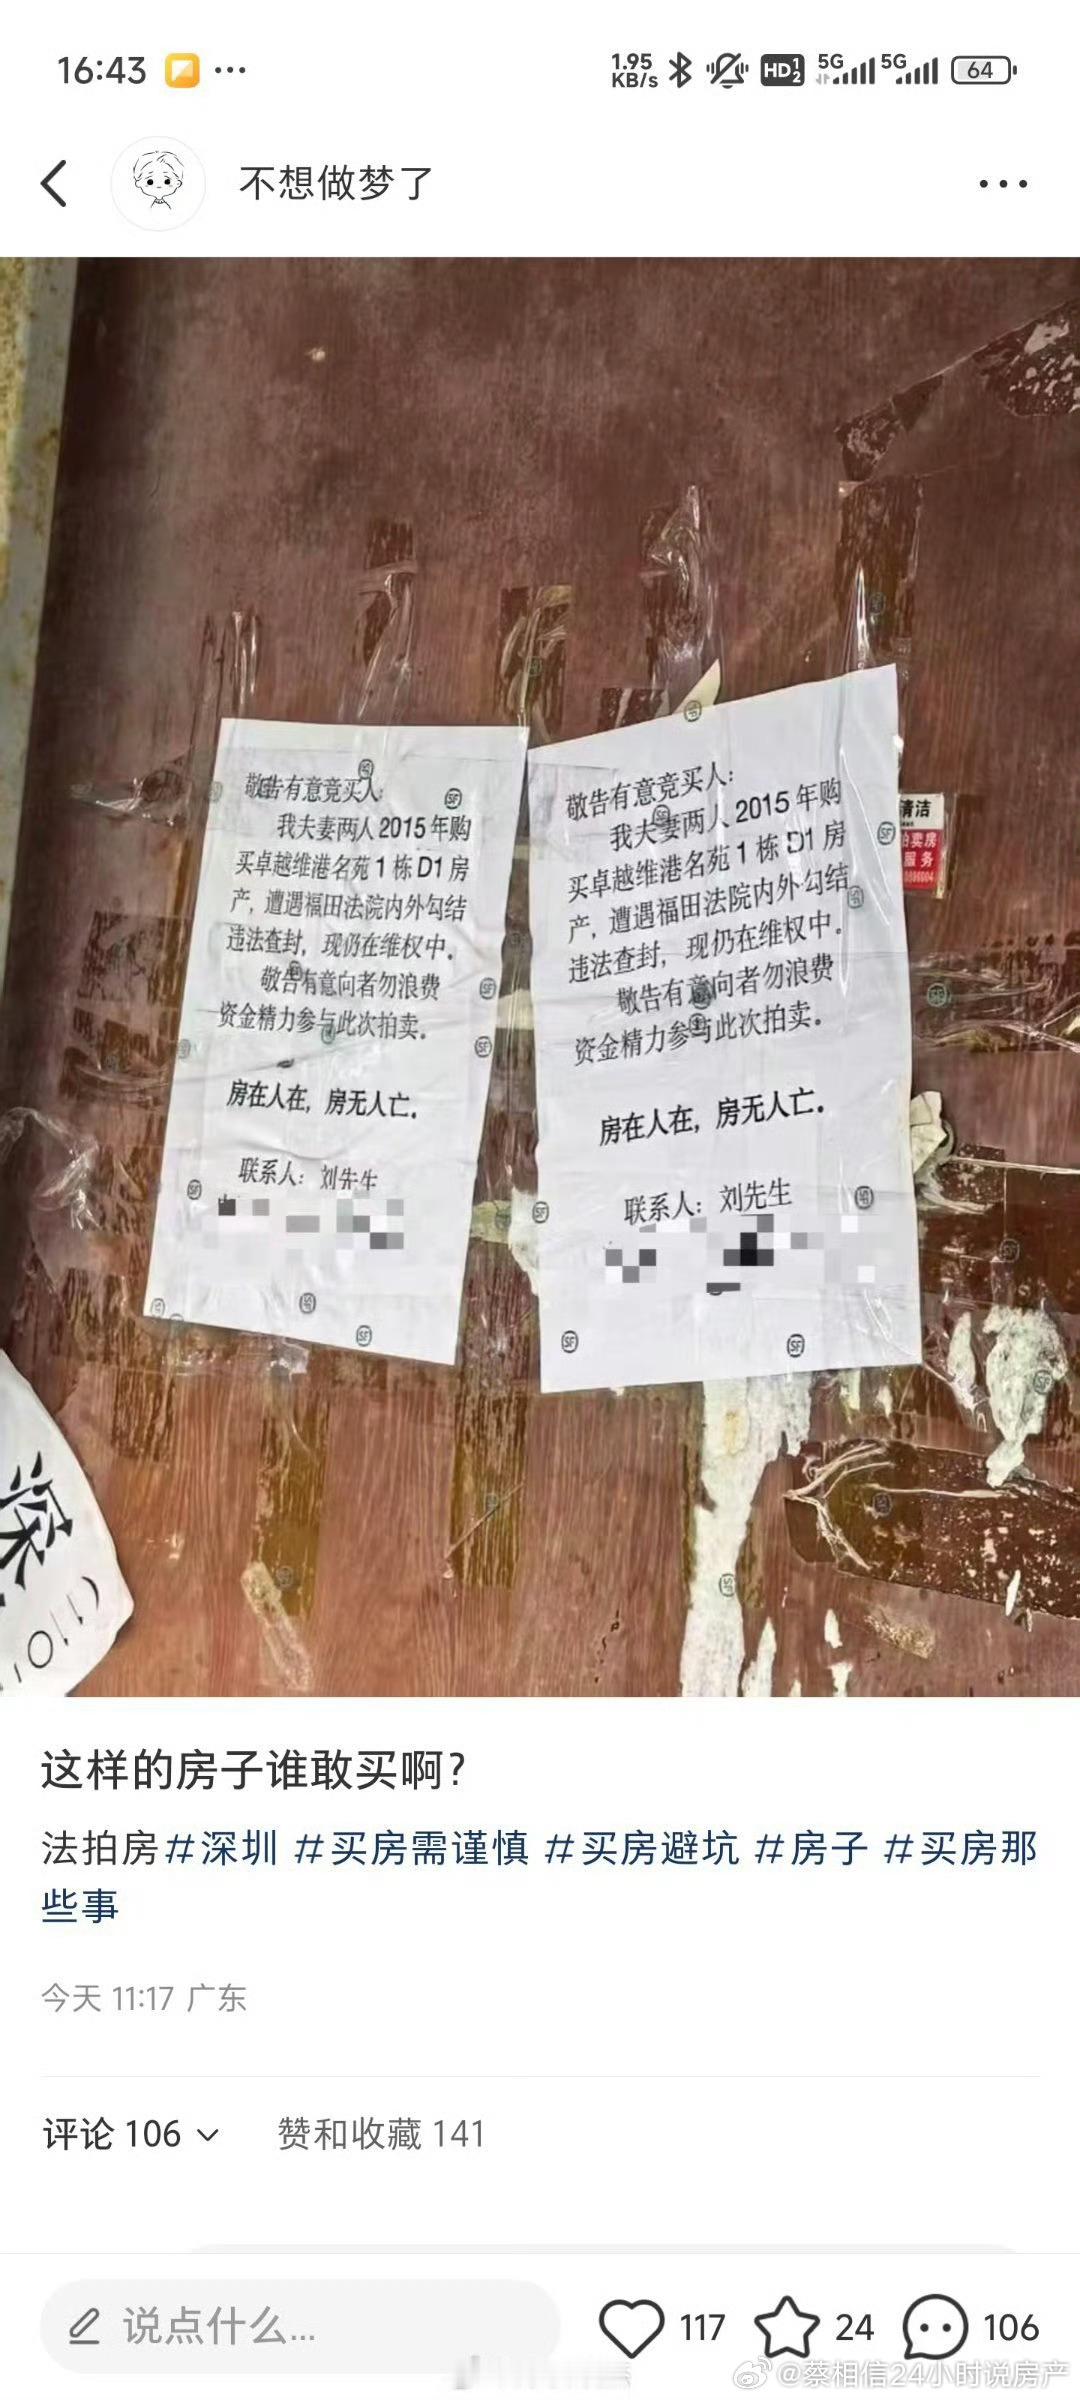 16:43
1.95
KB/s
HD 1
2
5G
5G
64
不想做梦了
敬告有意竞买人:
我夫妻两人2015年购
买卓越维港名苑1栋D1房
产,遭遇福田法院内外勾结
违法查封,现仍在维权中。
敬告有意向者勿浪费
资金精力参与此次拍卖。
房在人在,房无人亡。
联系人:刘先生
敬告有意竞买人:
我夫妻两人2015年购
买卓越维港名苑1栋D1房
产,遭遇福田法院内外勾结
违法查封,现仍在维权中。
敬告有意向者勿浪费
资金精力参与此次拍卖。
房在人在,房无人亡。
联系人:刘先生
清洁
拍卖房
服务
SF
这样的房子谁敢买啊?
法拍房#深圳 #买房需谨慎 #买房避坑 #房子 #买房那
些事
今天 11:17 广东
评论 106
赞和收藏 141
说点什么...
117
24
106
@蔡相信24小时说房产